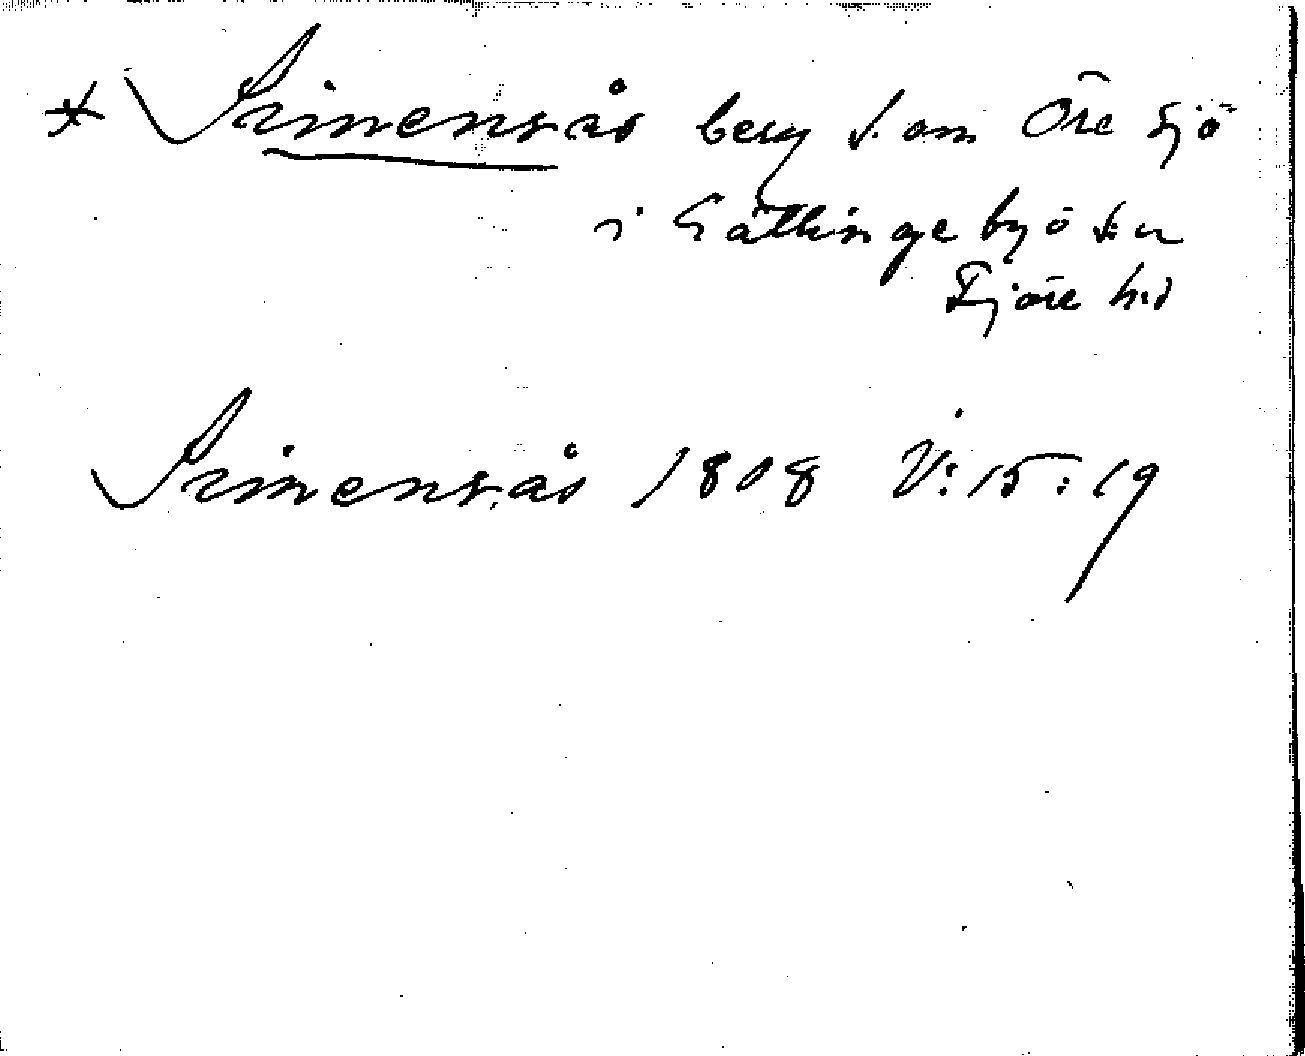 * Simensås berg S. om Öre sjö
i Gällinge by o s:n
Fjäre hd
Simensås 1808 V:15:19